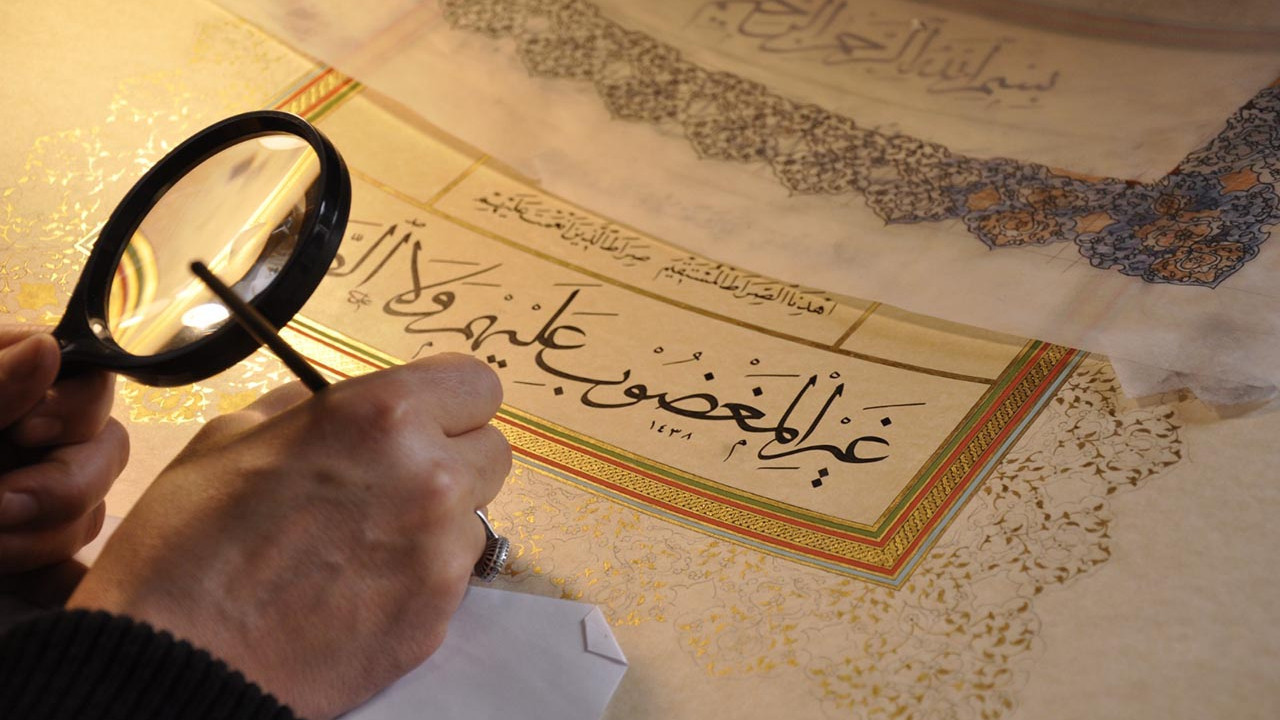 بسم الله الرحمن الرحيم
اهدنا الصراط المستقيم صراط الذين انعمت عليهم
غَيْرِ الْمَغْضُوْبِ عَلَيْهِمْ وَلَا
١٤٣٨